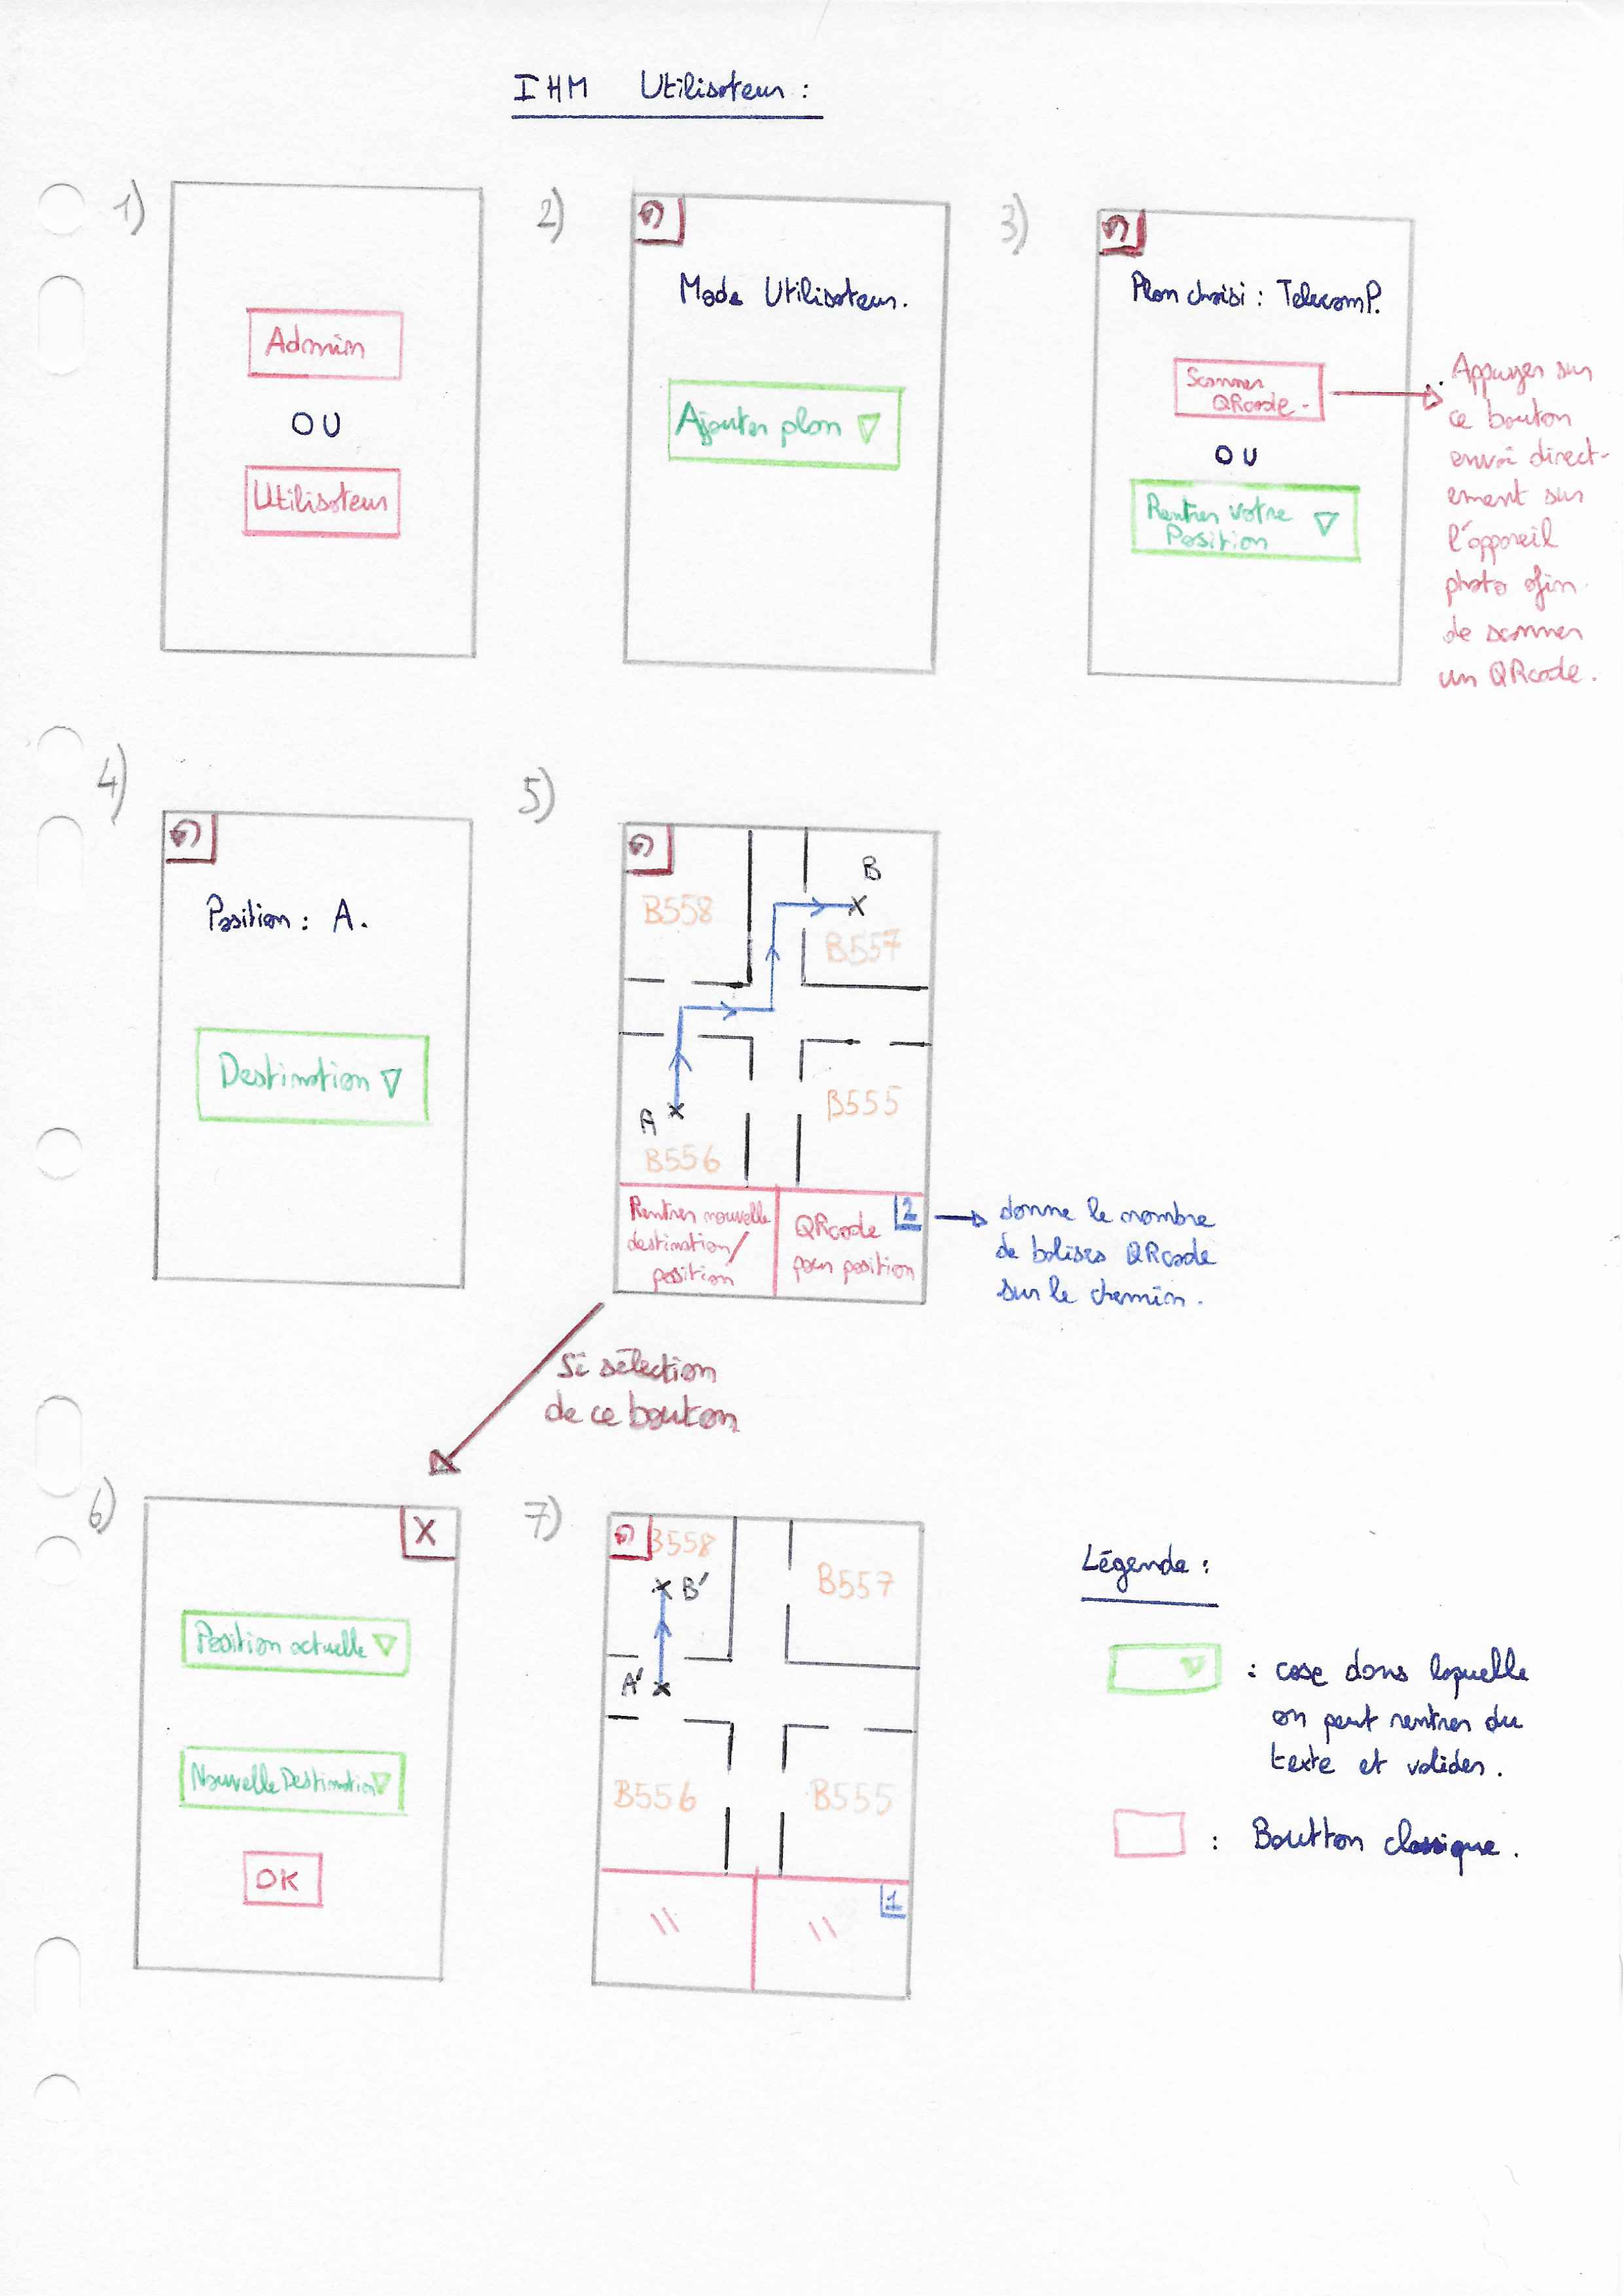 IHM Utilisateur :
1)
Admin
OU
Utilisateur
2)
Mode Utilisateur.
Ajouter plan
3)
Plan choisi : TelecomP.
Scanner
QRcode.
OU
Rentrer votre
Position
Appuyer sur
ce bouton
envoi direct-
ement sur
l'appareil
photo afin
de scanner
un QRcode.
4)
Position : A.
Destination
5)
B
B558
B557
A
B555
B556
Rentrer nouvelle
destination/
position
QRcode
pour position
2
donne le nombre
de balises QRcode
sur le chemin.
Si sélection
de ce bouton
6)
X
Position actuelle
Nouvelle Destination
OK
7)
B558
B'
B557
A'
B556
B555
\\
\\
1
Légende :
: case dans laquelle
on peut rentrer du
texte et valider.
: Boutton classique.